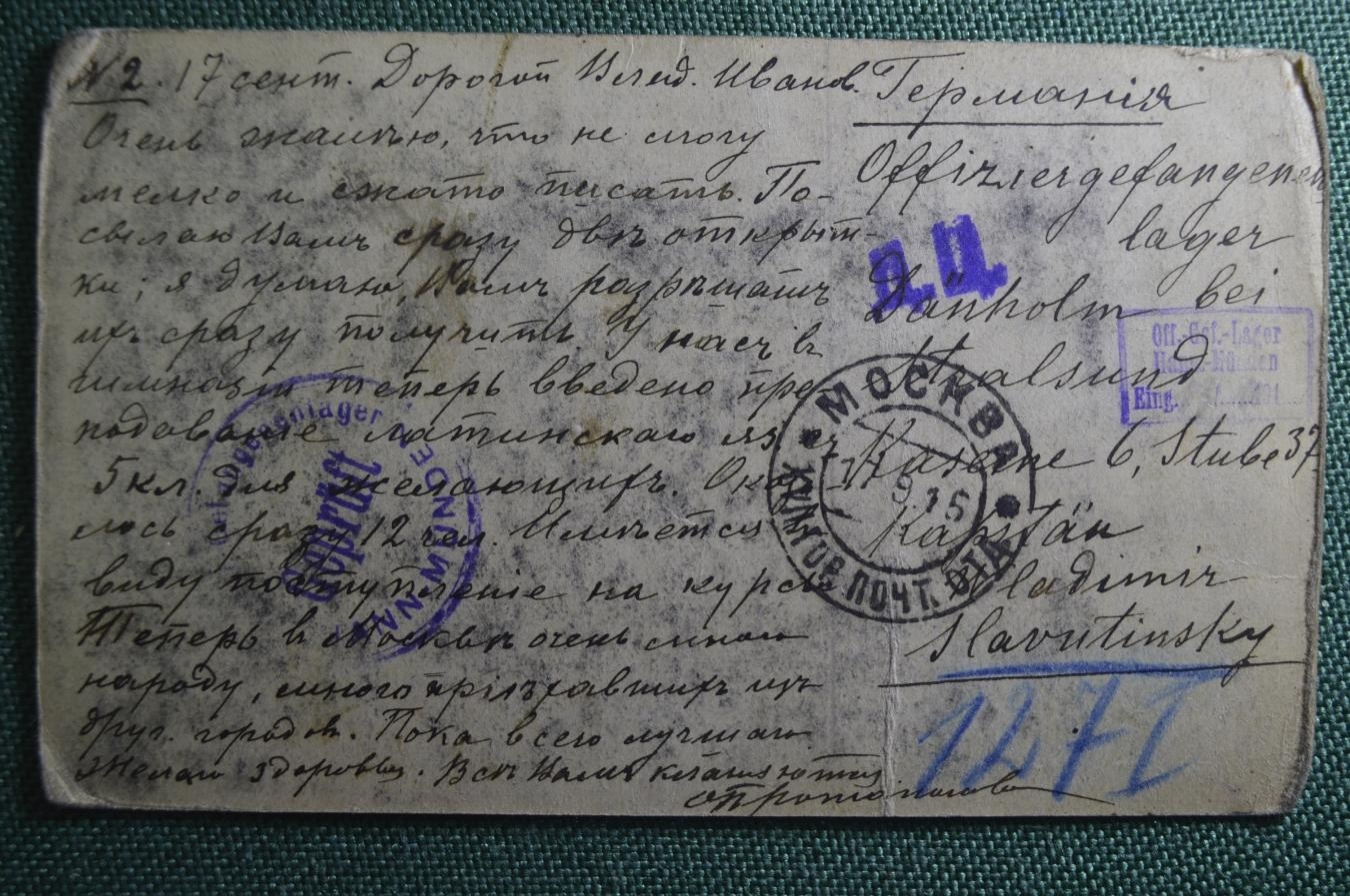 № 2. 17 сент. Дорогой Влад. Иванов.
Очень жалѣю, что не могу
мелко и сжато писать. По-
сылаю Вамъ сразу двѣ открыт-
ки; я думаю, Вамъ разрѣшатъ
ихъ сразу получить. У насъ въ
гимназіи теперь введено пре-
подованіе латинскаго яз. съ
5 кл. для желающихъ. Ока
лось сразу 12 чел. Имѣется
виду поступленіе на курсы
Теперь въ Москвѣ очень много
народу, много пріѣхавшихъ изъ
друг. городов. Пока всего лучшаго
Желаю здоровья. Всѣ Вамъ кланяются.
Германія
Offizier gefangenen
lager
Dänholm bei
Stralsund
Kaserne 6, Stube 37
Kapitän
Vladimir
Slavutinsky
1271
Д.Ц.
МОСКВА
15
ПОЧТ. ОТД.
Off.-Gef.-Lager
Hann.-Münden
Eing.
Geprüft
MÜNDEN